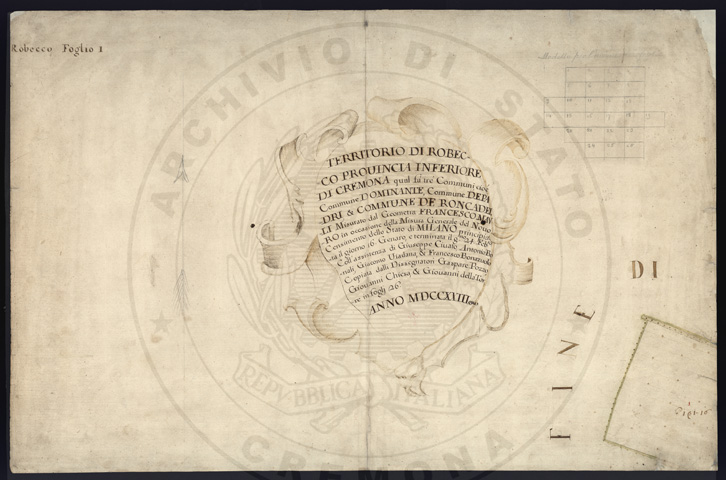 Robecco Foglio 1
TERRITORIO DI ROBEC-
CO PROUINCIA INFERIORE
DI CREMONA qual fa tre Communi cioè
Commune DOMINANTE, Commune DE PA
DRI & COMMUNE DE RONCADEL
LI Misurato dal Geometra FRANCESCO MAV
RO in occasione della Misura Generale del Nouo
Censimento dello Stato di MILANO principia
ta il giorno 16 Genaro e terminata il
Coll'assistenza di Giuseppe Antonio
Giacomo & Francesco
Copiata dalli Dissegnatori Gaspare Pozzi
Giouanni Chiesa & Giouanni della Tor
re in fogli 26
ANNO MDCCXVIII
FINE
DI
ARCHIVIO DI STATO
REPVBBLICA ITALIANA
CREMONA